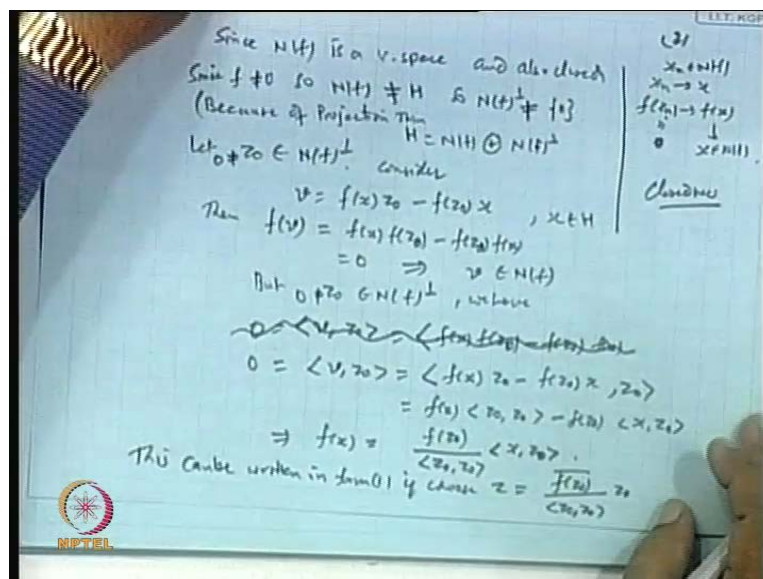 I.I.T. KGP
Since N(f) is a v. space and also closed
Since f ≠ 0 so N(f) ≠ H so N(f)^⊥ ≠ {0}
(Because of Projection Thm
H = N(f) ⊕ N(f)^⊥
Let 0 ≠ z0 ∈ N(f)^⊥. Consider
v = f(x) z0 - f(z0) x , x ∈ H
Then f(v) = f(x) f(z0) - f(z0) f(x)
= 0 ⇒ v ∈ N(f)
But 0 ≠ z0 ∈ N(f)^⊥, we have
0 = <v, z0> = <f(x) z0 - f(z0) x, z0>
= f(x) <z0, z0> - f(z0) <x, z0>
⇒ f(x) = f(z0) / <z0, z0> <x, z0>.
This can be written in form (1) if choose z = \overline{f(z0)} / <z0, z0> z0
(2)
xn ∈ N(f)
xn → x
f(xn) → f(x)
0 x ∈ N(f).
Closedness
NPTEL